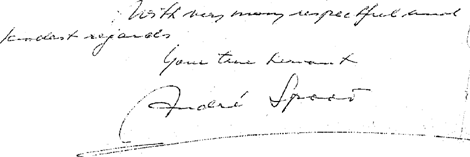 With very many respectful and
kindest regards
Your true servant
André Spoor